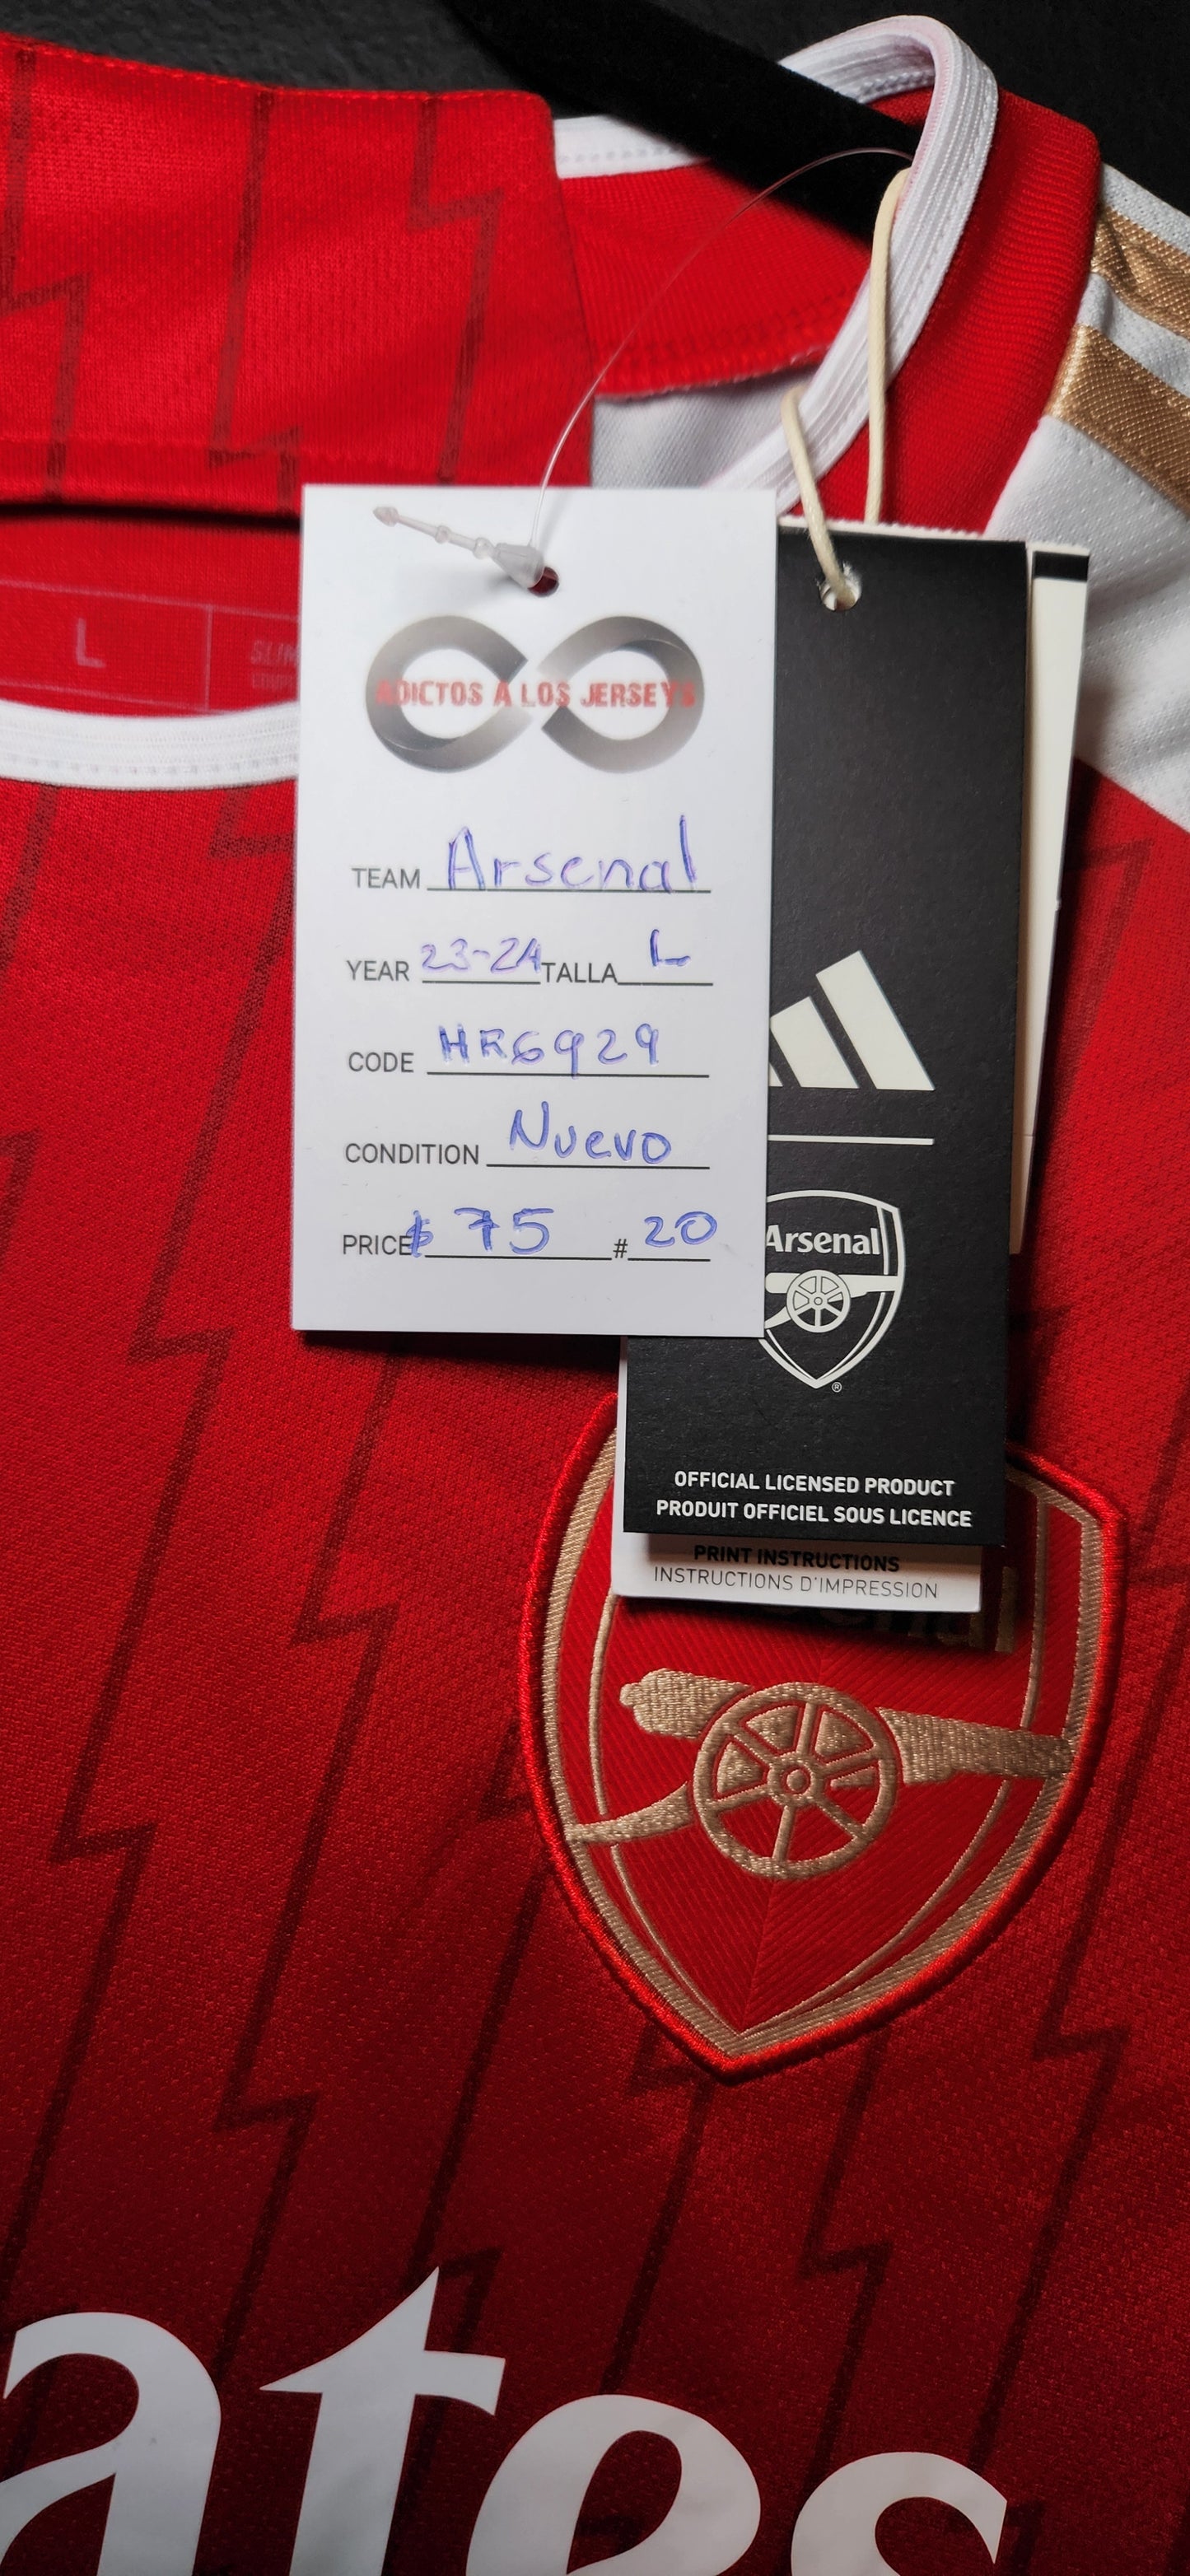 L
ADICTOS A LOS JERSEYS
TEAM Arsenal
YEAR 23-24 TALLA L
CODE HR6929
CONDITION Nuevo
PRICE $ 75 # 20
Arsenal
®
OFFICIAL LICENSED PRODUCT
PRODUIT OFFICIEL SOUS LICENCE
PRINT INSTRUCTIONS
INSTRUCTIONS D'IMPRESSION
ates